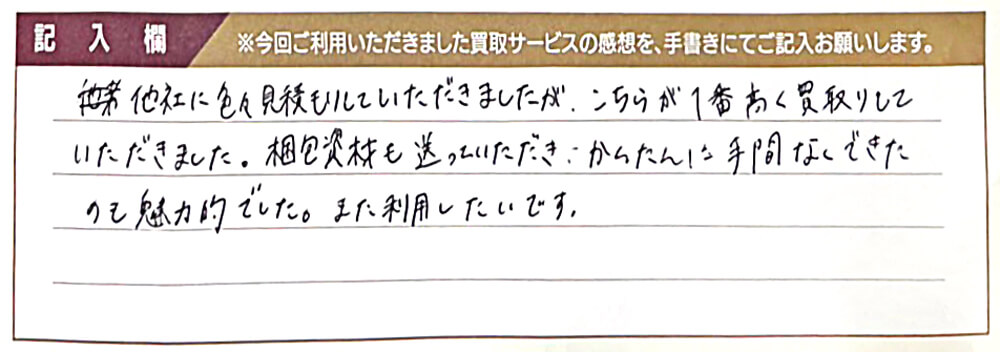 記入欄
※今回ご利用いただきました買取サービスの感想を、手書きにてご記入お願いします。
他社に色々見積もりしていただきましたが、こちらが1番高く買取りして
いただきました。梱包資材も送っていただき、かんたんに手間なくできた
のも魅力的でした。また利用したいです。